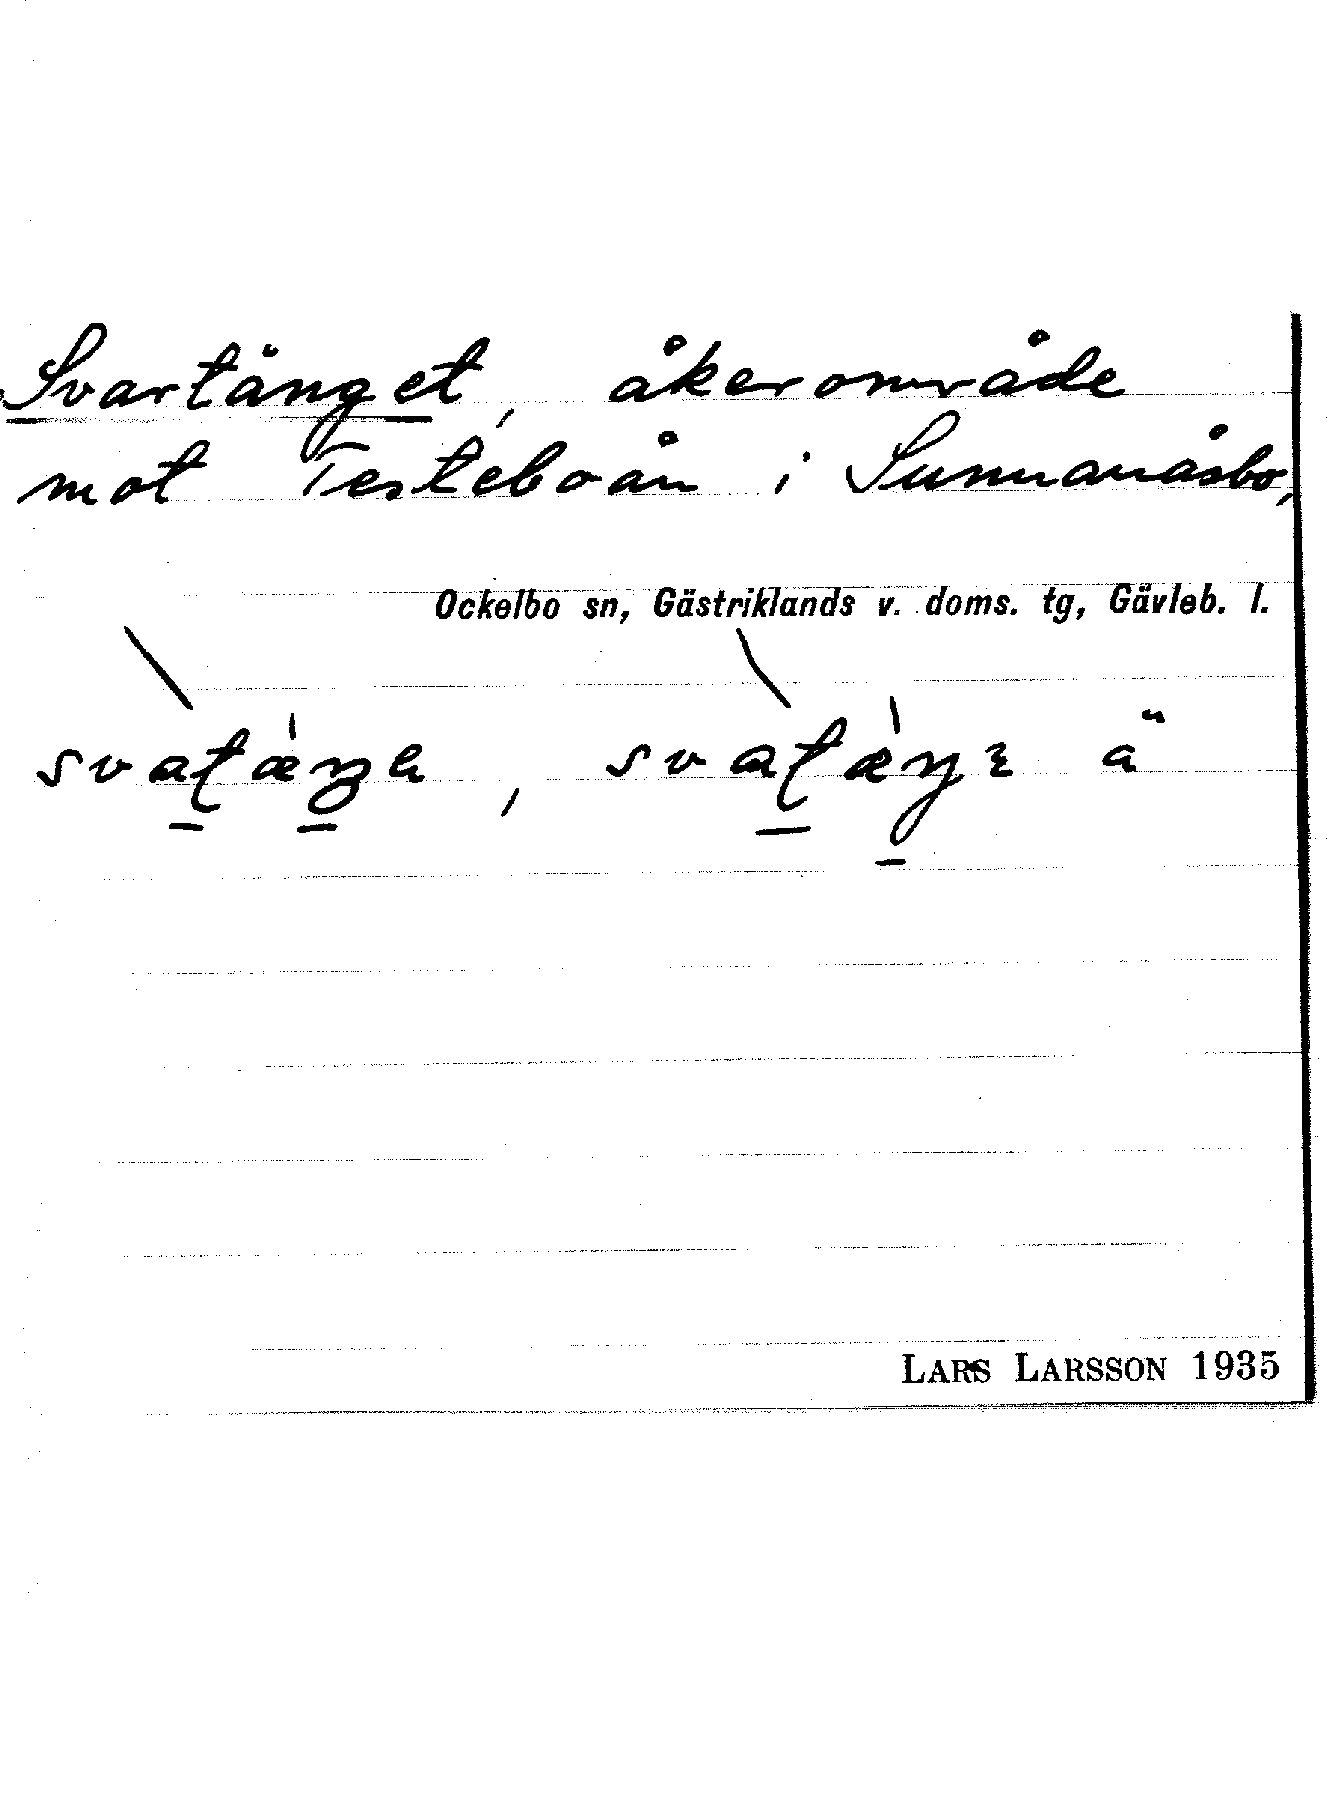 Svartänget, åkerområde
mot Testeboån i Sunnanåsbo,
Ockelbo sn, Gästriklands v. doms. tg, Gävleb. l.
LARS LARSSON 1935